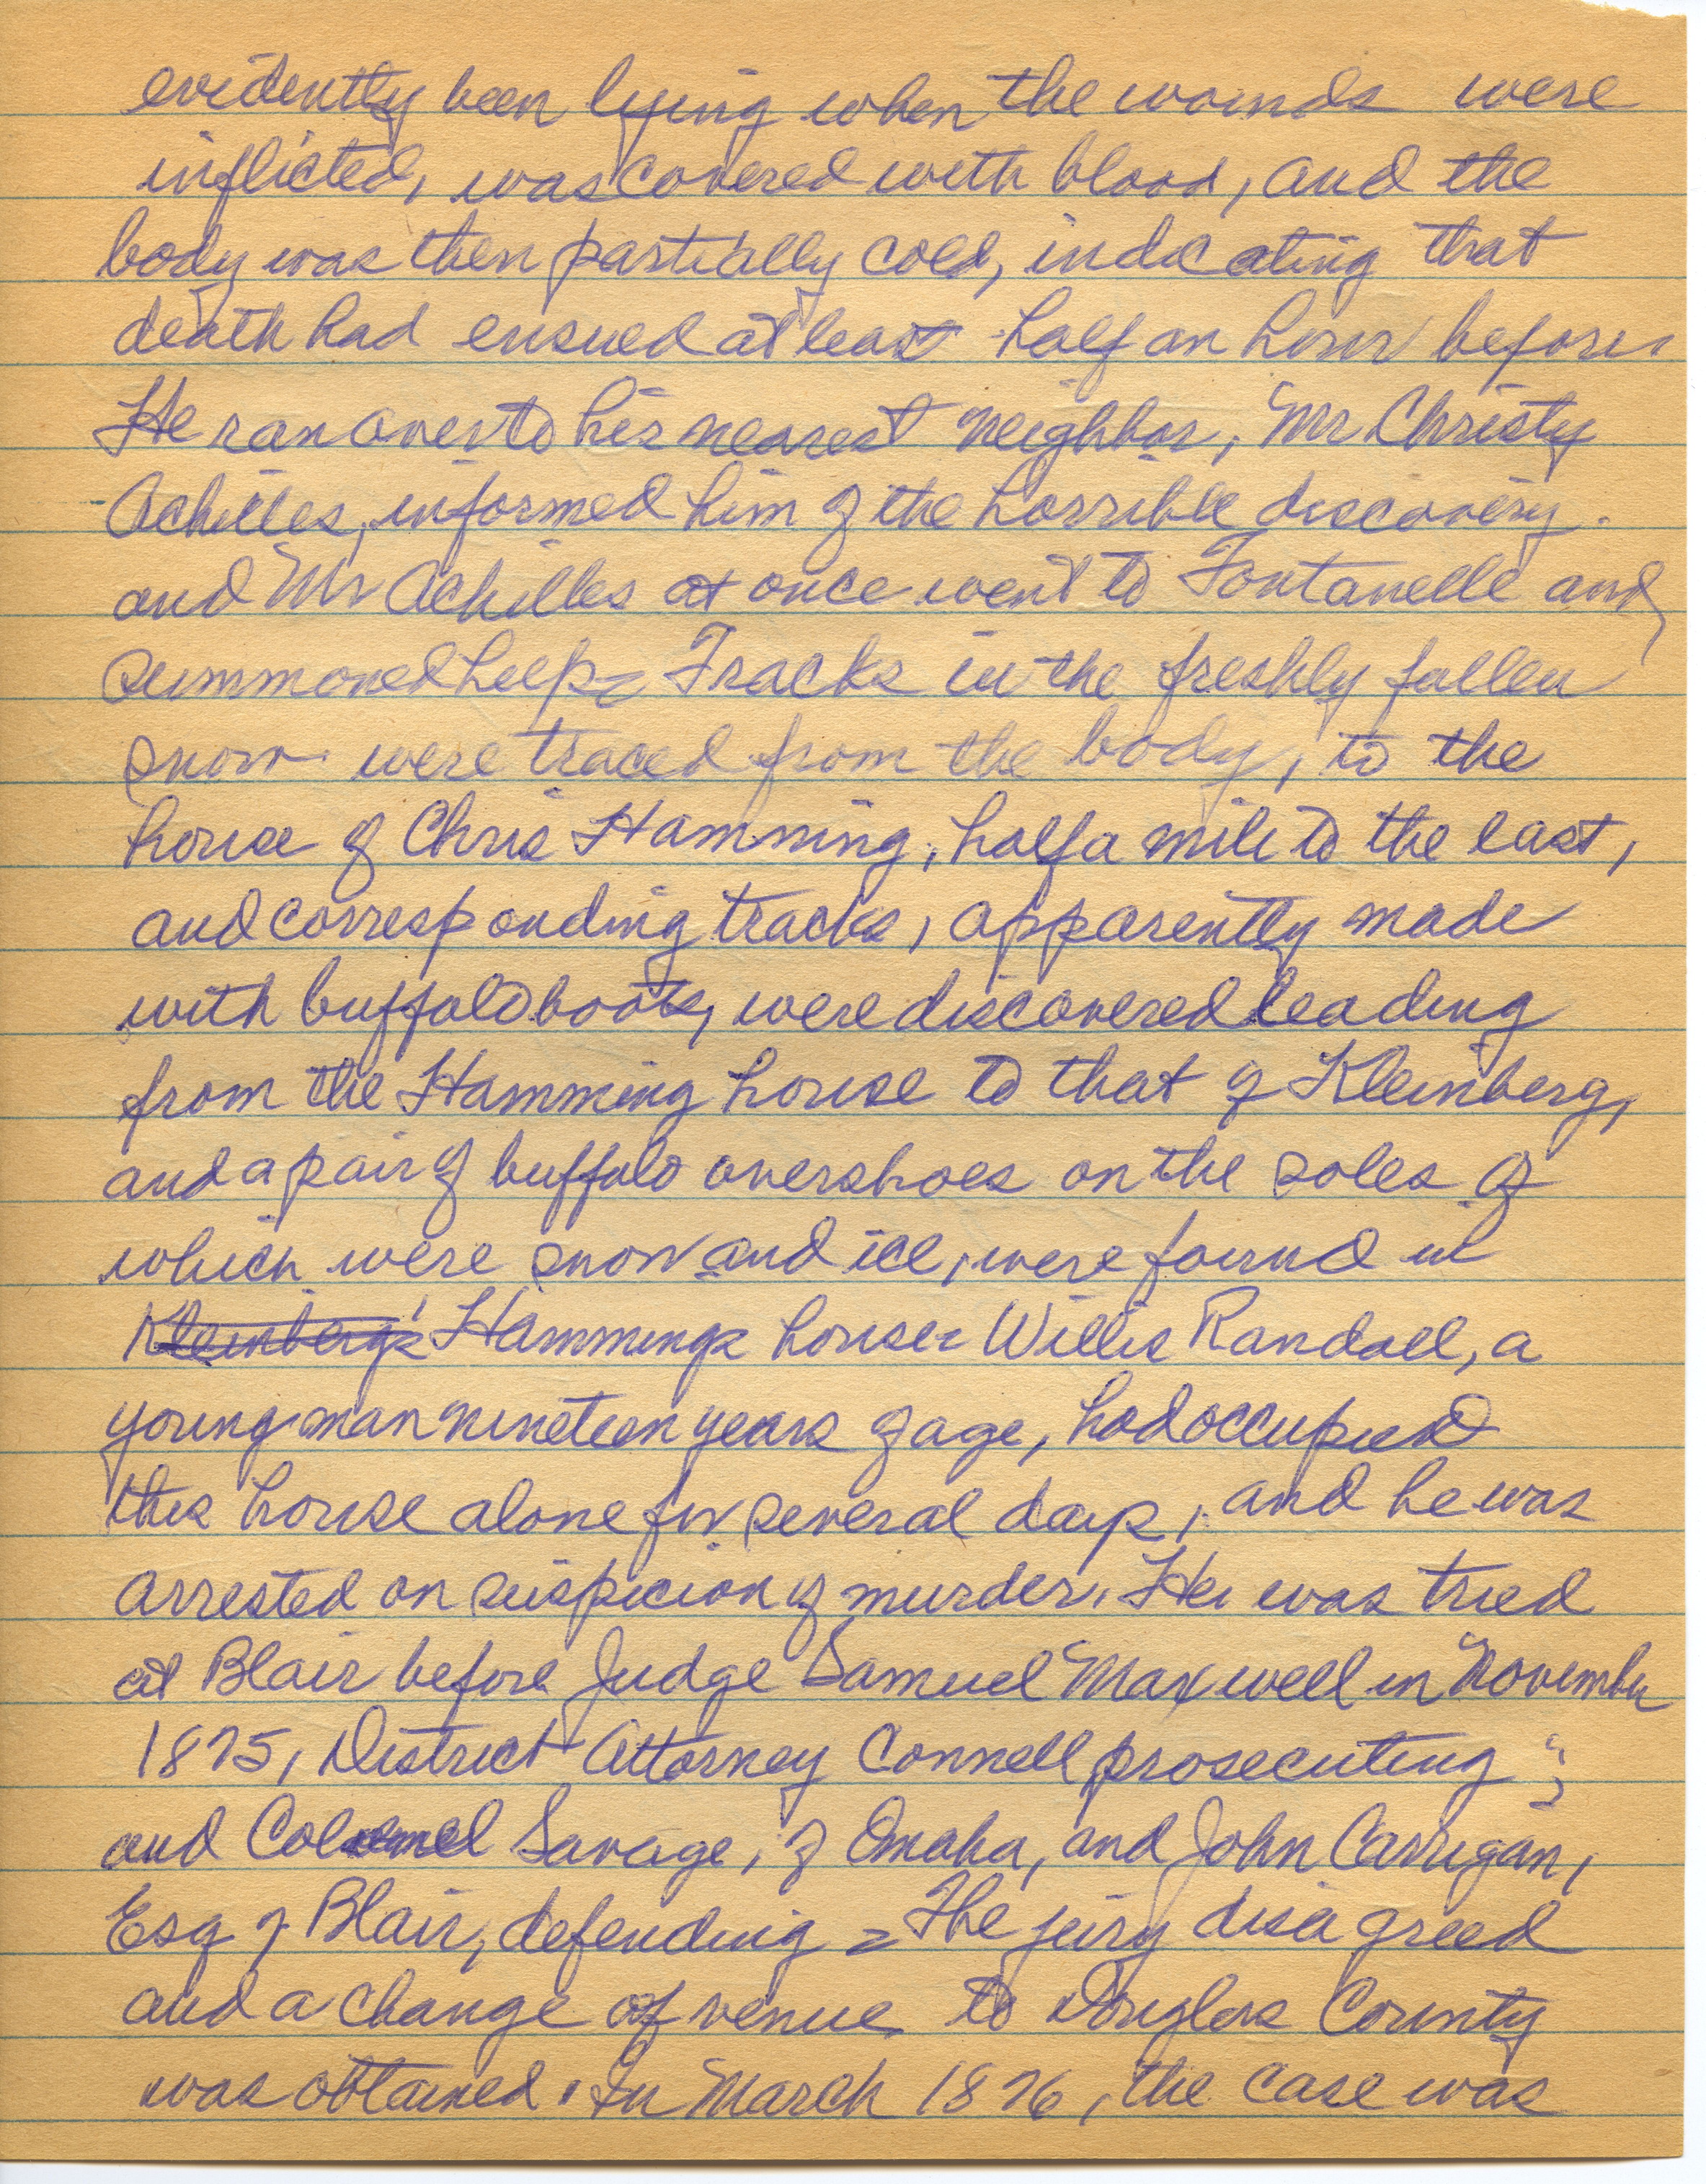 evidently been lying when the wounds were
inflicted, was covered with blood, and the
body was then partially cold, indicating that
death had ensued at least half an hour before.
He ran over to his nearest neighbor, Mr Christy
Achilles, informed him of the horrible discovery.
and Mr Achilles at once went to Fontanelle and
summoned help. Tracks in the freshly fallen
snow were traced from the body, to the
house of Chris Hamming, half a mile to the east,
and corresponding tracks, apparently made
with buffalo boots, were discovered leading
from the Hamming house to that of Kleinberg,
and a pair of buffalo overshoes on the soles of
which were snow and ice, were found in
Kleinberg's Hammings house. Willis Randall, a
young man nineteen years of age, had occupied
this house alone for several days, and he was
arrested on suspicion of murder. He was tried
at Blair before Judge Samuel Maxwell in November
1875, District Attorney Connell prosecuting;
and Colonel Savage, of Omaha, and John Carrigan,
Esq of Blair, defending. The jury disagreed
and a change of venue to Douglas County
was obtained. In March 1876, the case was